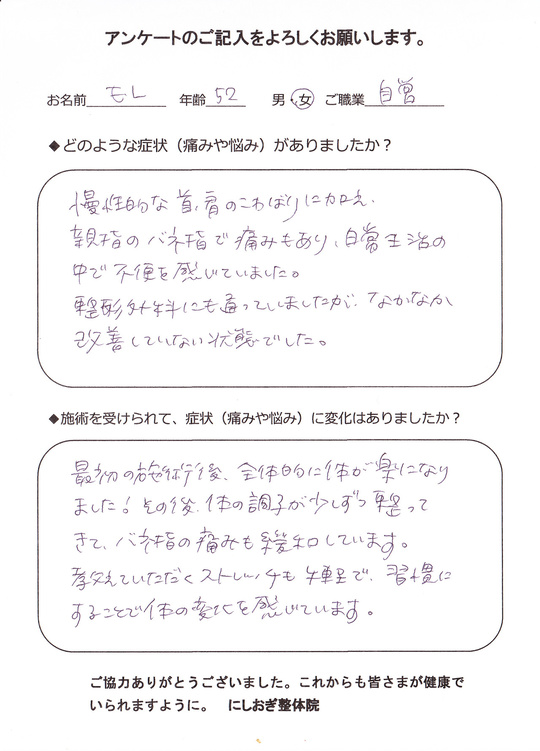 アンケートのご記入をよろしくお願いします。
お名前 もし 年齢 52 男・女 ご職業 自営
◆どのような症状（痛みや悩み）がありましたか？
慢性的な首、肩のこわばりに加え、
親指のバネ指で痛みもあり、日常生活の
中で不便を感じていました。
整形外科にも通っていましたが、なかなか
改善していない状態でした。
◆施術を受けられて、症状（痛みや悩み）に変化はありましたか？
最初の施術後、全体的に体が楽になり
ました！その後、体の調子が少しずつ整って
きて、バネ指の痛みも緩和しています。
教えていただくストレッチも手軽で、習慣に
することで体の変化を感じています。
ご協力ありがとうございました。これからも皆さまが健康で
いられますように。 にしおぎ整体院